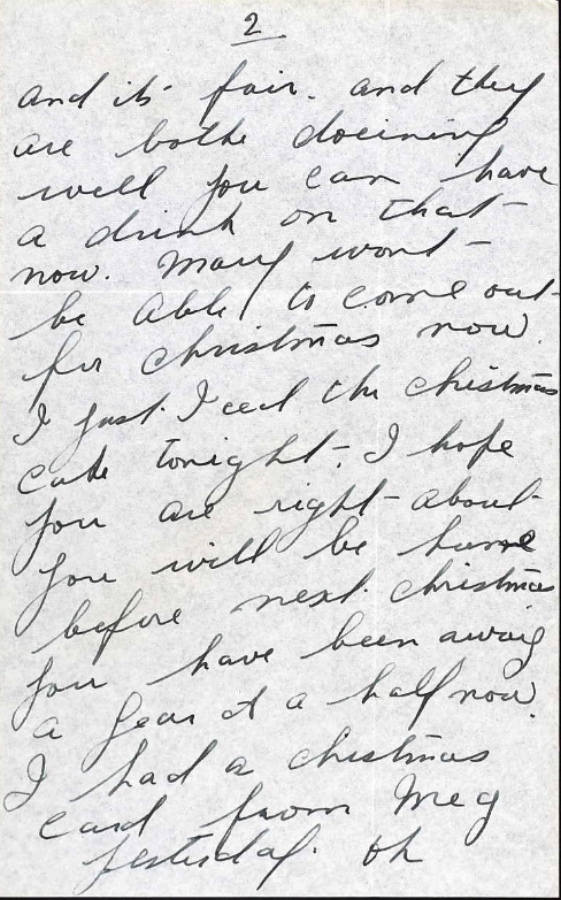 2
and its fair. and they
are bothe doeining
well you can have
a drink on that
now. Mary wont
be Able to come out
for christmas now.
I just Iceed the christmas
cake tonight. I hope
you are right about
you will be home
before next christmas
you have been away
a year & a half now.
I had a christmas
card from Meg
yesterday. oh